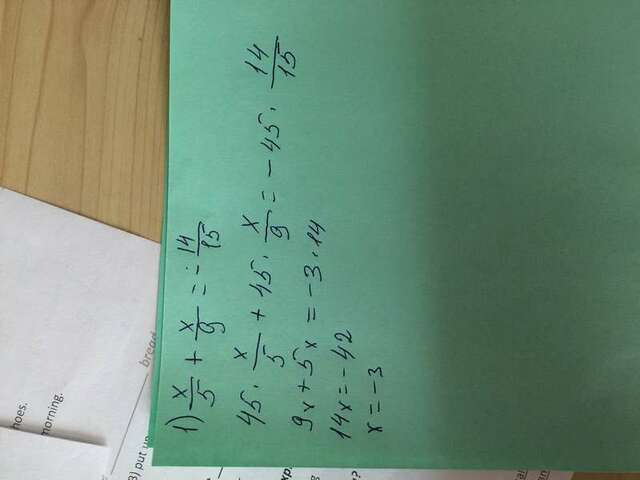 1) x/5 + x/9 = -14/15
45 · x/5 + 45 · x/9 = -45 · 14/15
9x + 5x = -3 · 14
14x = -42
x = -3
hoes.
morning.
bread
3) put up